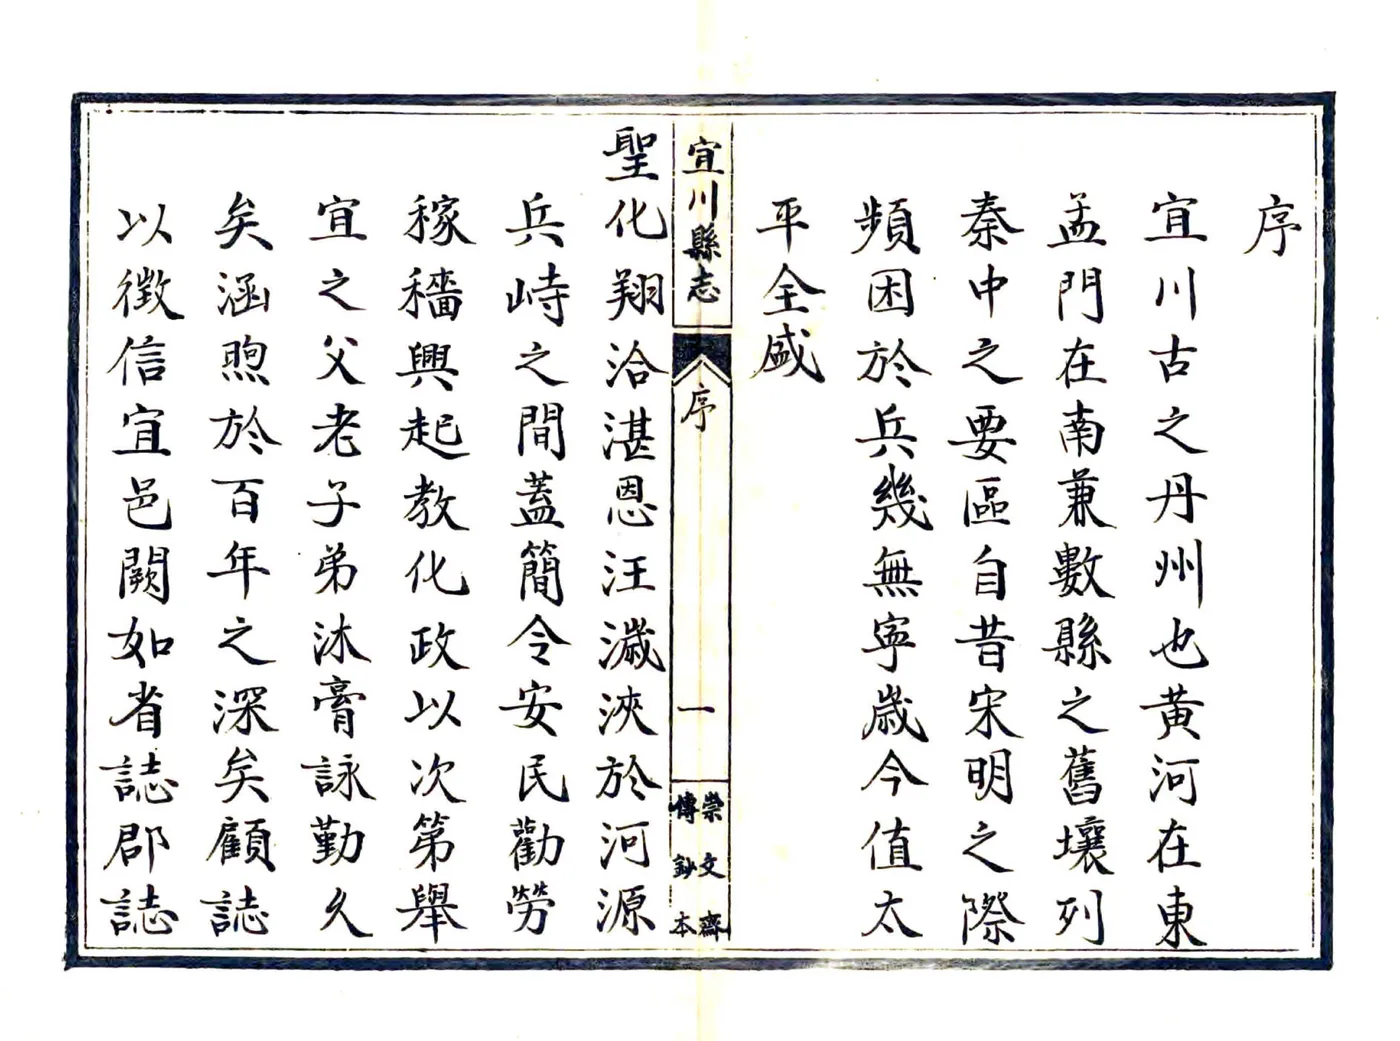 序
宜川古之丹州也黃河在東
孟門在南兼數縣之舊壤列
秦中之要區自昔宋明之際
頻困於兵幾無寧歲今值太
平全盛
宜川縣志
序
一
崇文齋
傳鈔本
聖化翔洽湛恩汪濊浹於河源
兵峙之間蓋簡令安民勸勞
稼穡興起教化政以次第舉
宜之父老子弟沐膏詠勤久
矣涵煦於百年之深矣顧誌
以徵信宜邑闕如省誌郡誌